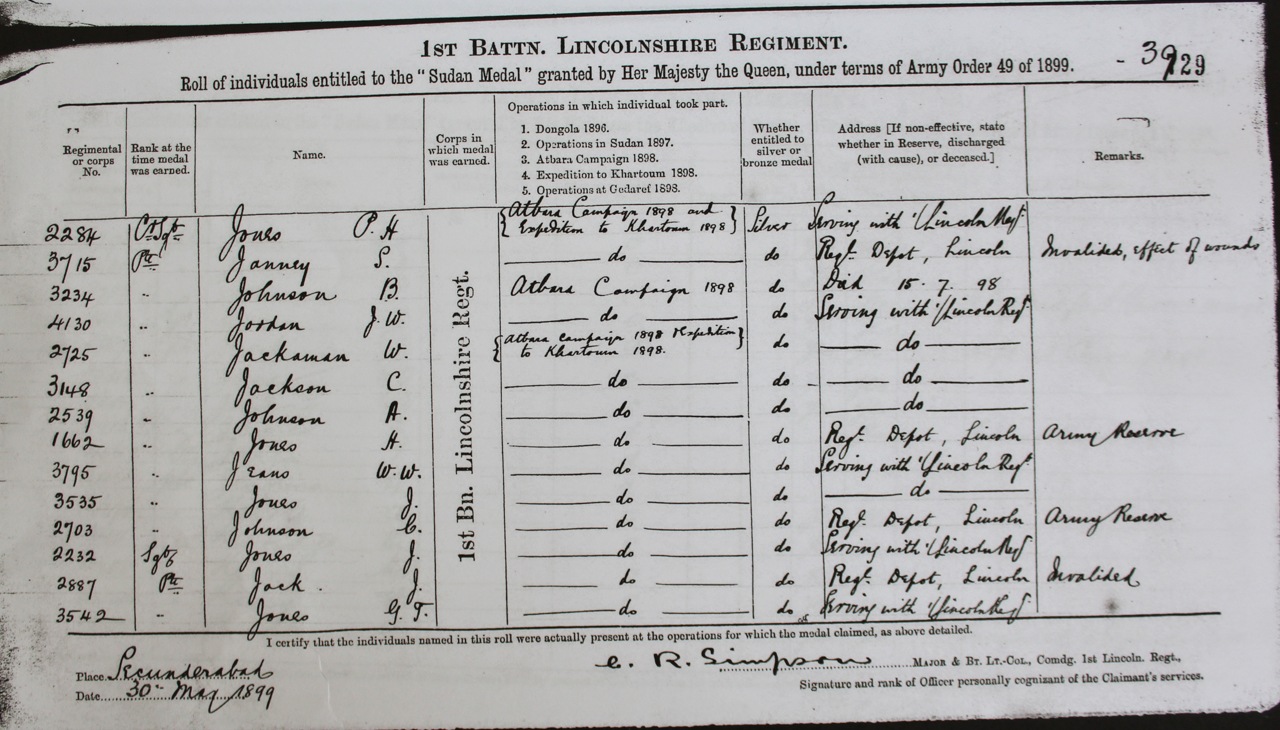 1ST BATTN. LINCOLNSHIRE REGIMENT.
Roll of individuals entitled to the "Sudan Medal" granted by Her Majesty the Queen, under terms of Army Order 49 of 1899.
- 39
129
Regimental or corps No.
Rank at the time medal was earned.
Name.
Corps in which medal was earned.
Operations in which individual took part.
1. Dongola 1896.
2. Operations in Sudan 1897.
3. Atbara Campaign 1898.
4. Expedition to Khartoum 1898.
5. Operations at Gedaref 1898.
Whether entitled to silver or bronze medal
Address [If non-effective, state whether in Reserve, discharged (with cause), or deceased.]
Remarks.
1st Bn. Lincolnshire Regt.
2284 Ct Sgt Jones P. H {Atbara Campaign 1898 and Expedition to Khartoum 1898} Silver Serving with 1/Lincoln Regt
3715 Pte Janney S. do do Regt. Depot, Lincoln Invalided, effect of wounds
3234 " Johnson B. Atbara Campaign 1898 do Died 15. 7. 98
4130 " Jordan J. W. do do Serving with 1/Lincoln Regt
2725 " Jackaman W. {Atbara Campaign 1898 Expedition to Khartoum 1898.} do do
3148 " Jackson C. do do do
2539 " Johnson A. do do do
1662 " Jones H. do do Regt. Depot, Lincoln Army Reserve
3795 " Jeans W. W. do do Serving with 1/Lincoln Regt
3535 " Jones J. do do do
2703 " Johnson C. do do Regt. Depot, Lincoln Army Reserve
2232 Sgt Jones J. do do Serving with 1/Lincoln Regt
2887 Pte Jack . J. do do Regt. Depot, Lincoln Invalided
3542 " Jones G. T. do do Serving with 1/Lincoln Regt
I certify that the individuals named in this roll were actually present at the operations for which the medal claimed, as above detailed.
Place Secunderabad
Date 30th May 1899
C. R. Simpson MAJOR & BT. LT.-COL., Comdg. 1st Lincoln. Regt.,
Signature and rank of Officer personally cognizant of the Claimant's services.